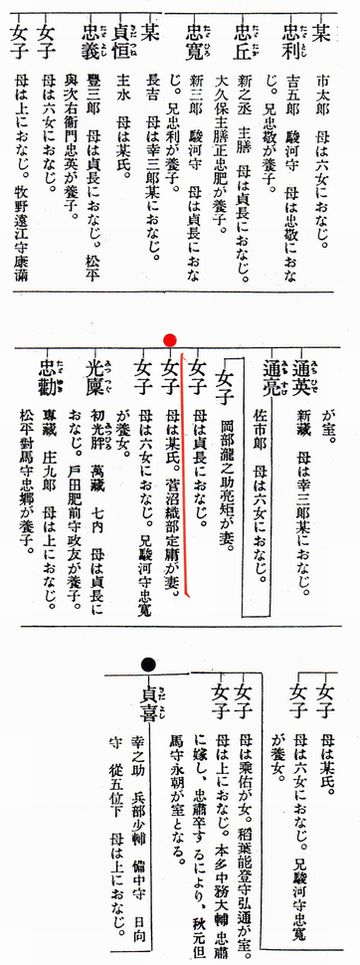 某
市太郎 母は六女におなじ。
忠利 たゞとし
吉五郎 駿河守 母は忠敬におな
じ。兄忠敬が養子。
忠丘 たゞたか
新之丞 主膳 母は貞長におなじ。
大久保主膳正忠肥が養子。
忠寛 たゞひろ
新三郎 駿河守 母は貞長におな
じ。兄忠利が養子。
某
長吉 母は幸三郎某におなじ。
貞恒 さだつね
主水 母は某氏。
忠義 たゞよし
豐三郎 母は貞長におなじ。松平
與次右衞門忠英が養子。
女子
母は六女におなじ。
女子
母は上におなじ。牧野遠江守康滿
が室。
通英 みちひで
新藏 母は幸三郎某におなじ。
通亮 みちすけ
佐市郎 母は六女におなじ。
女子
岡部瀧之助亮矩が妻。
女子
母は貞長におなじ。
女子
母は某氏。菅沼織部定庸が妻。
女子
母は六女におなじ。兄駿河守忠寛
が養女。
光廈 みつつぐ
初光胖 みつひろ 萬藏 七内 母は貞長に
おなじ。戸田肥前守政友が養子。
忠勸 たゞゆき
專藏 庄九郎 母は上におなじ。
松平對馬守忠郷が養子。
女子
母は某氏。
女子
母は六女におなじ。兄駿河守忠寛
が養女。
女子
母は乘佑が女。稻葉能登守弘通が室。
女子
母は上におなじ。本多中務大輔忠肅
に嫁し、忠肅卒するにより、秋元但
馬守永朝が室となる。
貞喜 さだよし
幸之助 兵部少輔 備中守 日向
守 從五位下 母は上におなじ。